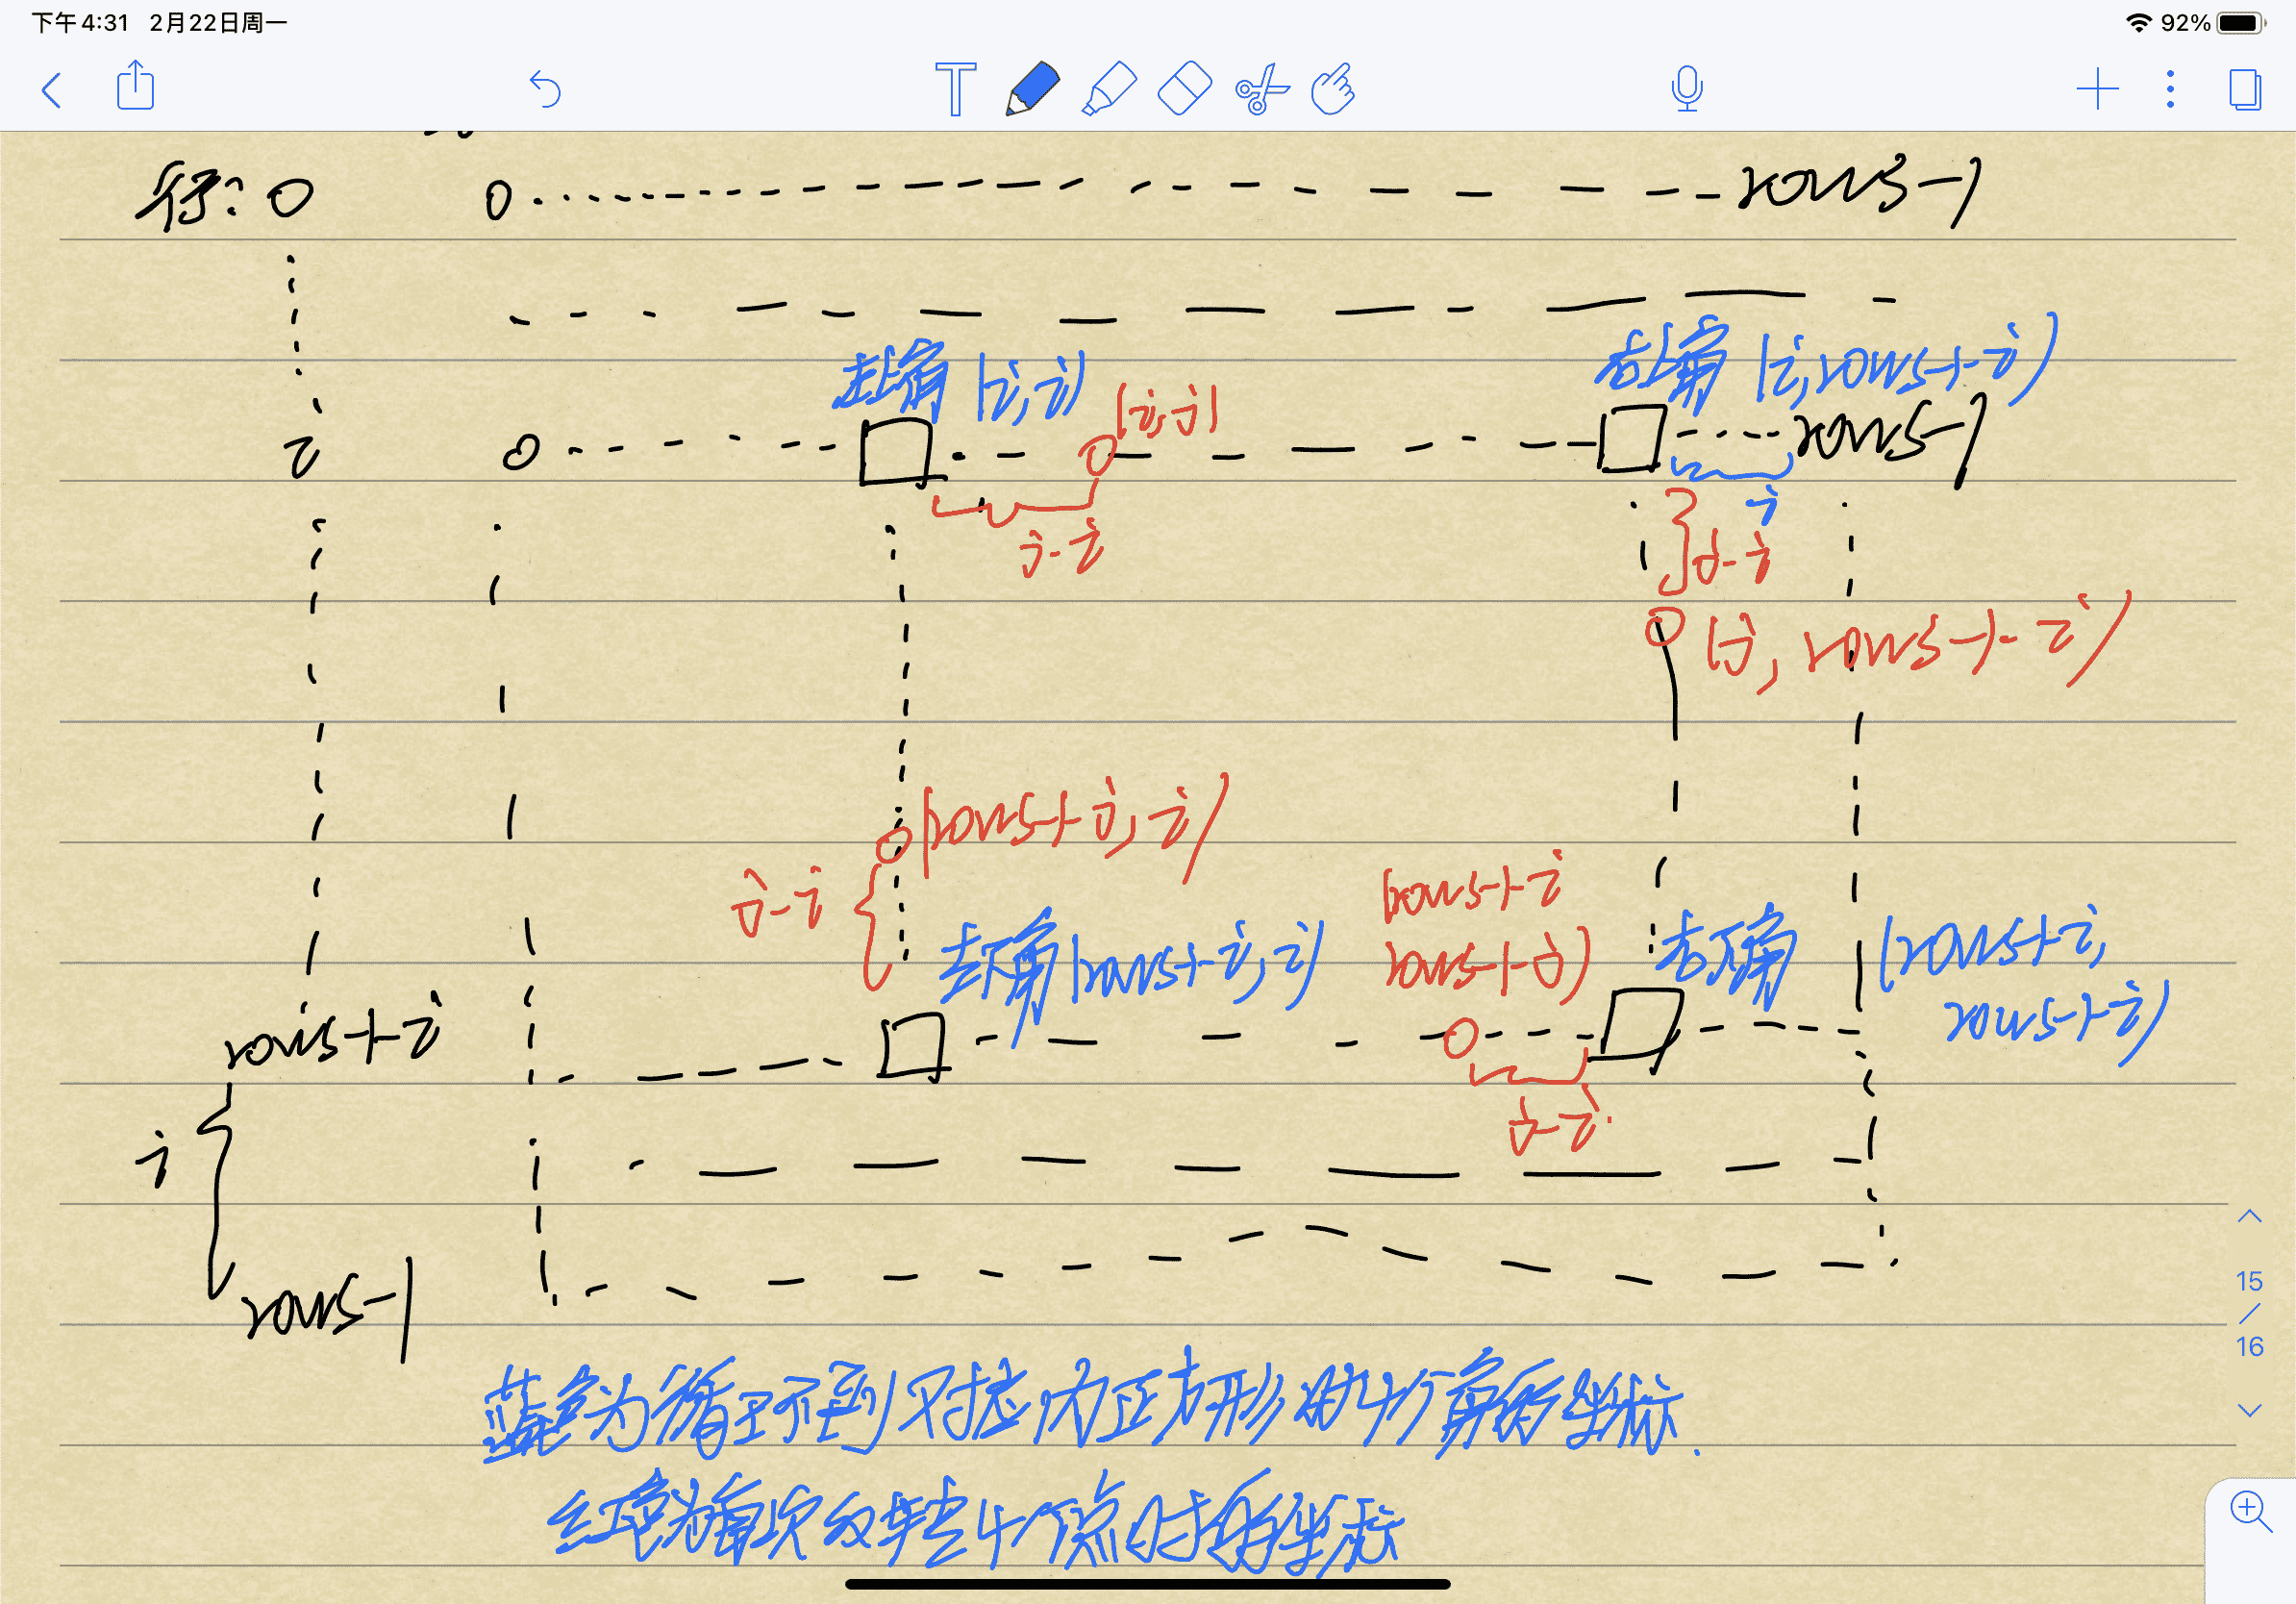 下午4:31 2月22日周一
92%
T
行: 0 0 rows-1
左上角 (i,i)
右上角 (i,rows-1-i)
(i,j)
i 0 rows-1
i
j-i
j-i
(j, rows-1-i)
(rows-1-j, i)
j-i
(rows-1-i
rows-1-j)
左下角(rows-1-i, i)
右下角 (rows-1-i,
rows-1-i)
rows-1-i
j-i
i
rows-1
15
/
16
蓝色为循环到对应内正方形的4个角的坐标.
红色为每次反转4个点时的坐标